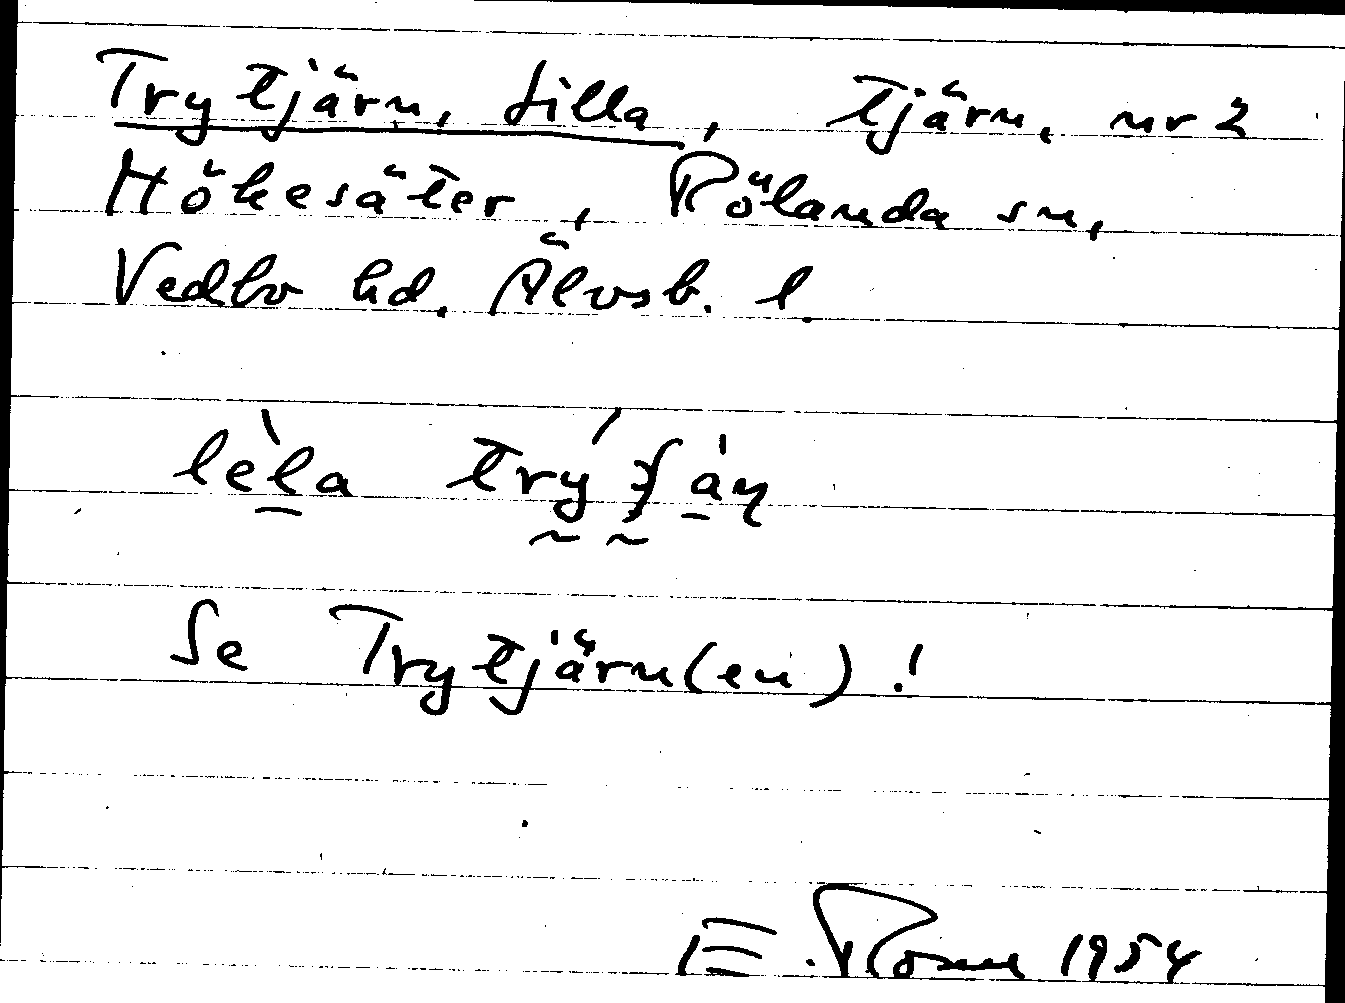 Trytjärn, Lilla, tjärn, nr 2
Hökesäter, Rölanda sn,
Vedbo hd. Älvsb. l.
Se Trytjärn(en)!
E. Rosell 1954